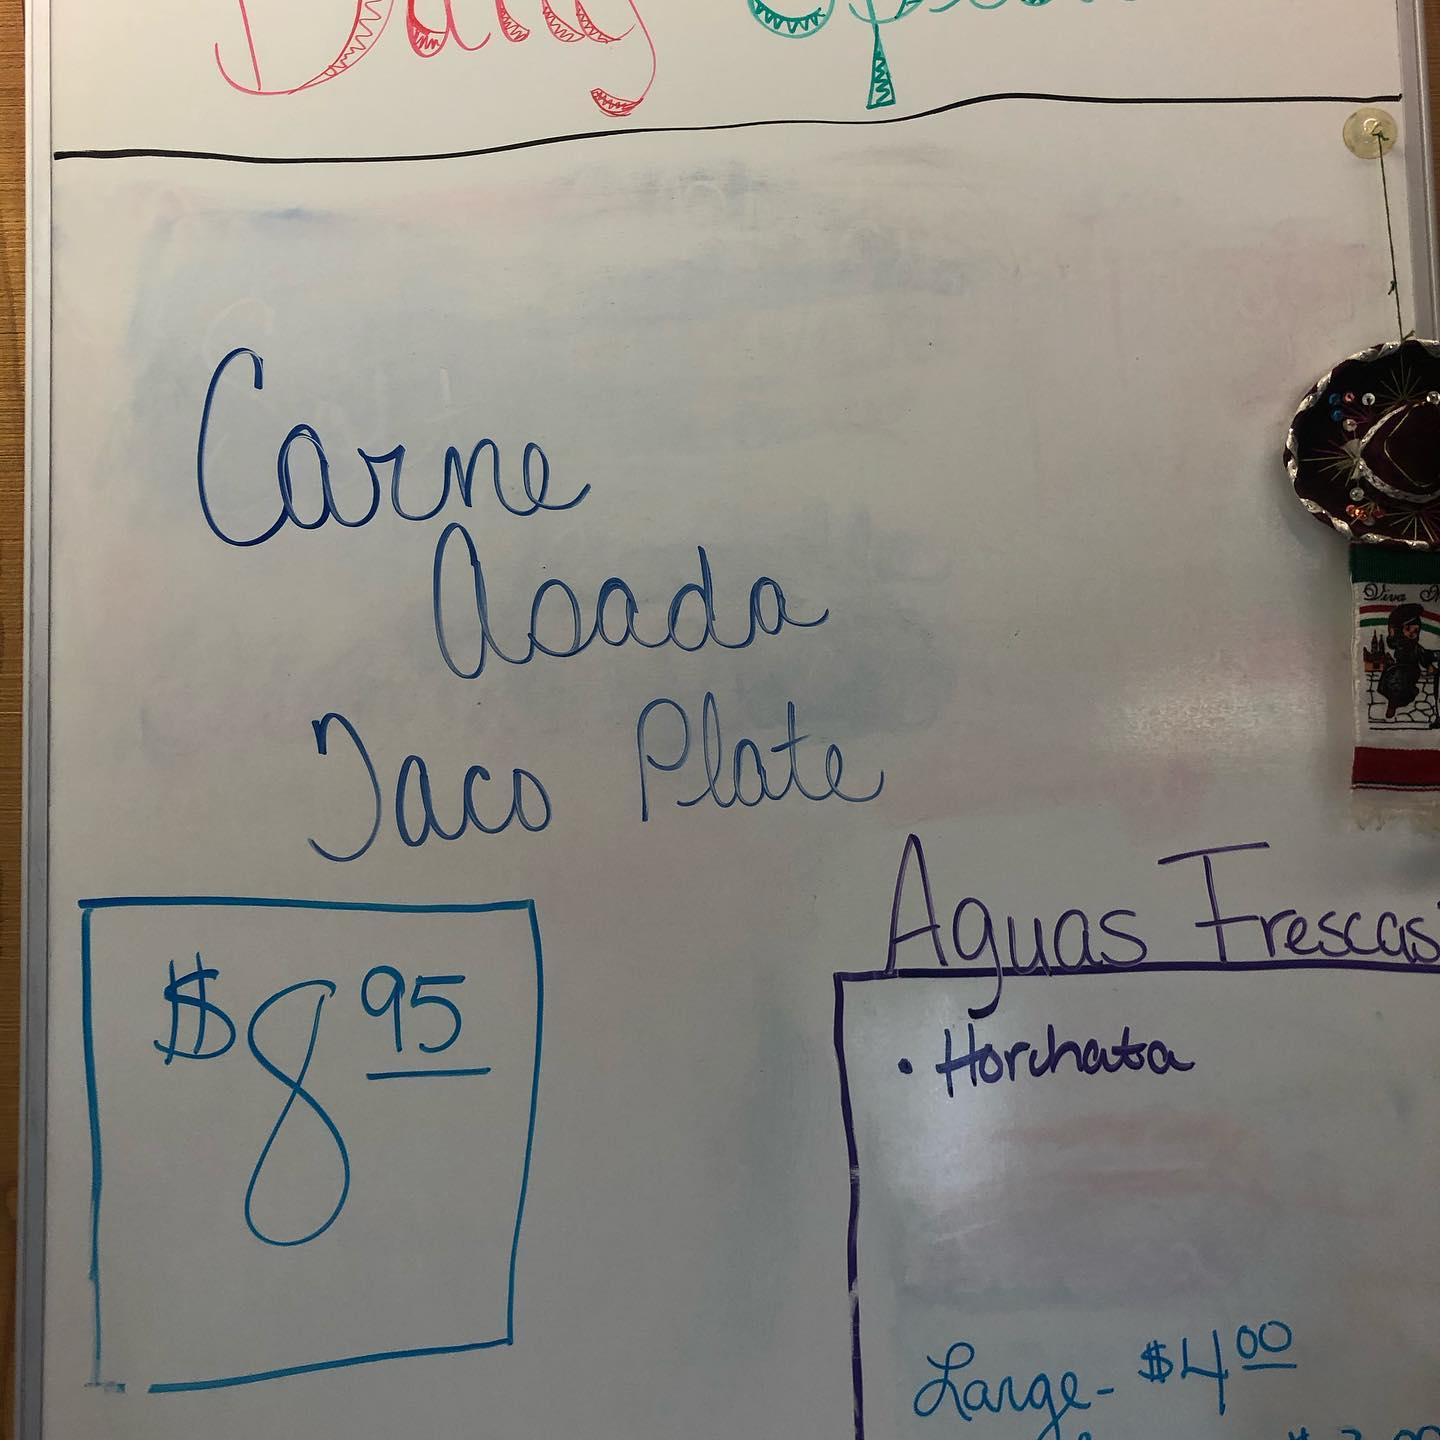 Daily Special
Carne
Asada
Taco Plate
$8.95
Aguas Frescas
• Horchata
Large - $4.00
Viva